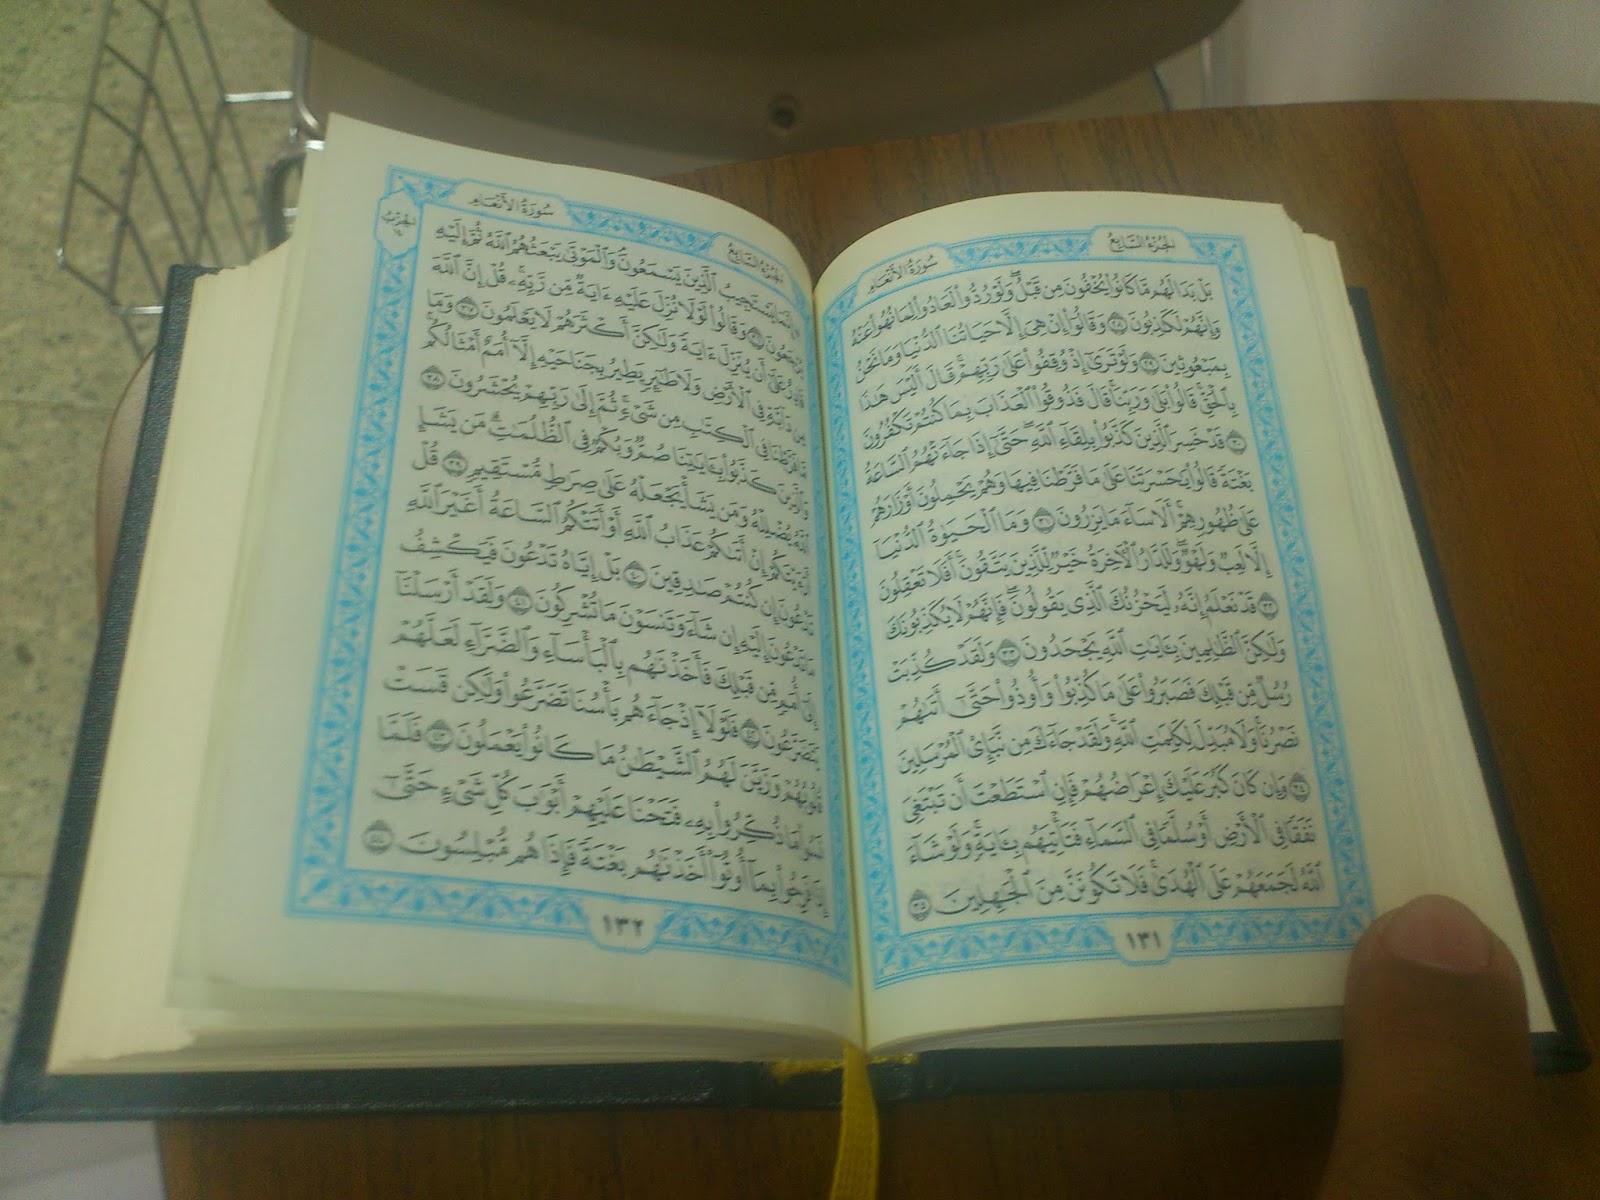 سُورَةُ الأَنْعَامِ الجُزْءُ السَّابِعُ
بَلْ بَدَا لَهُم مَّا كَانُوا۟ يُخْفُونَ مِن قَبْلُ ۖ وَلَوْ رُدُّوا۟ لَعَادُوا۟ لِمَا نُهُوا۟ عَنْهُ
وَإِنَّهُمْ لَكَٰذِبُونَ ٢٨ وَقَالُوٓا۟ إِنْ هِىَ إِلَّا حَيَاتُنَا ٱلدُّنْيَا وَمَا نَحْنُ
بِمَبْعُوثِينَ ٢٩ وَلَوْ تَرَىٰٓ إِذْ وُقِفُوا۟ عَلَىٰ رَبِّهِمْ ۚ قَالَ أَلَيْسَ هَٰذَا
بِٱلْحَقِّ ۚ قَالُوا۟ بَلَىٰ وَرَبِّنَا ۚ قَالَ فَذُوقُوا۟ ٱلْعَذَابَ بِمَا كُنتُمْ تَكْفُرُونَ
٣٠ قَدْ خَسِرَ ٱلَّذِينَ كَذَّبُوا۟ بِلِقَآءِ ٱللَّهِ ۖ حَتَّىٰٓ إِذَا جَآءَتْهُمُ ٱلسَّاعَةُ
بَغْتَةً قَالُوا۟ يَٰحَسْرَتَنَا عَلَىٰ مَا فَرَّطْنَا فِيهَا وَهُمْ يَحْمِلُونَ أَوْزَارَهُمْ
عَلَىٰ ظُهُورِهِمْ ۚ أَلَا سَآءَ مَا يَزِرُونَ ٣١ وَمَا ٱلْحَيَوٰةُ ٱلدُّنْيَآ
إِلَّا لَعِبٌ وَلَهْوٌ ۖ وَلَلدَّارُ ٱلْءَاخِرَةُ خَيْرٌ لِّلَّذِينَ يَتَّقُونَ ۗ أَفَلَا تَعْقِلُونَ
٣٢ قَدْ نَعْلَمُ إِنَّهُۥ لَيَحْزُنُكَ ٱلَّذِى يَقُولُونَ ۖ فَإِنَّهُمْ لَا يُكَذِّبُونَكَ
وَلَٰكِنَّ ٱلظَّٰلِمِينَ بِـَٔايَٰتِ ٱللَّهِ يَجْحَدُونَ ٣٣ وَلَقَدْ كُذِّبَتْ
رُسُلٌ مِّن قَبْلِكَ فَصَبَرُوا۟ عَلَىٰ مَا كُذِّبُوا۟ وَأُوذُوا۟ حَتَّىٰٓ أَتَىٰهُمْ
نَصْرُنَا ۚ وَلَا مُبَدِّلَ لِكَلِمَٰتِ ٱللَّهِ ۚ وَلَقَدْ جَآءَكَ مِن نَّبَإِى۟ ٱلْمُرْسَلِينَ
٣٤ وَإِن كَانَ كَبُرَ عَلَيْكَ إِعْرَاضُهُمْ فَإِنِ ٱسْتَطَعْتَ أَن تَبْتَغِىَ
نَفَقًا فِى ٱلْأَرْضِ أَوْ سُلَّمًا فِى ٱلسَّمَآءِ فَتَأْتِيَهُم بِـَٔايَةٍ ۚ وَلَوْ شَآءَ
ٱللَّهُ لَجَمَعَهُمْ عَلَى ٱلْهُدَىٰ ۚ فَلَا تَكُونَنَّ مِنَ ٱلْجَٰهِلِينَ ٣٥
١٣١
الجُزْءُ السَّابِعُ سُورَةُ الأَنْعَامِ
الحِزْبُ
١٤
۞ إِنَّمَا يَسْتَجِيبُ ٱلَّذِينَ يَسْمَعُونَ ۘ وَٱلْمَوْتَىٰ يَبْعَثُهُمُ ٱللَّهُ ثُمَّ إِلَيْهِ
يُرْجَعُونَ ٣٦ وَقَالُوا۟ لَوْلَا نُزِّلَ عَلَيْهِ ءَايَةٌ مِّن رَّبِّهِۦ ۚ قُلْ إِنَّ ٱللَّهَ
قَادِرٌ عَلَىٰٓ أَن يُنَزِّلَ ءَايَةً وَلَٰكِنَّ أَكْثَرَهُمْ لَا يَعْلَمُونَ ٣٧ وَمَا
مِن دَآبَّةٍ فِى ٱلْأَرْضِ وَلَا طَٰٓئِرٍ يَطِيرُ بِجَنَاحَيْهِ إِلَّآ أُمَمٌ أَمْثَالُكُم ۚ
مَّا فَرَّطْنَا فِى ٱلْكِتَٰبِ مِن شَىْءٍ ۚ ثُمَّ إِلَىٰ رَبِّهِمْ يُحْشَرُونَ ٣٨
وَٱلَّذِينَ كَذَّبُوا۟ بِـَٔايَٰتِنَا صُمٌّ وَبُكْمٌ فِى ٱلظُّلُمَٰتِ ۗ مَن يَشَإِ
ٱللَّهُ يُضْلِلْهُ وَمَن يَشَأْ يَجْعَلْهُ عَلَىٰ صِرَٰطٍ مُّسْتَقِيمٍ ٣٩ قُلْ
أَرَءَيْتَكُمْ إِنْ أَتَىٰكُمْ عَذَابُ ٱللَّهِ أَوْ أَتَتْكُمُ ٱلسَّاعَةُ أَغَيْرَ ٱللَّهِ
تَدْعُونَ إِن كُنتُمْ صَٰدِقِينَ ٤٠ بَلْ إِيَّاهُ تَدْعُونَ فَيَكْشِفُ
مَا تَدْعُونَ إِلَيْهِ إِن شَآءَ وَتَنسَوْنَ مَا تُشْرِكُونَ ٤١ وَلَقَدْ أَرْسَلْنَآ
إِلَىٰٓ أُمَمٍ مِّن قَبْلِكَ فَأَخَذْنَٰهُم بِٱلْبَأْسَآءِ وَٱلضَّرَّآءِ لَعَلَّهُمْ
يَتَضَرَّعُونَ ٤٢ فَلَوْلَآ إِذْ جَآءَهُم بَأْسُنَا تَضَرَّعُوا۟ وَلَٰكِن قَسَتْ
قُلُوبُهُمْ وَزَيَّنَ لَهُمُ ٱلشَّيْطَٰنُ مَا كَانُوا۟ يَعْمَلُونَ ٤٣ فَلَمَّا
نَسُوا۟ مَا ذُكِّرُوا۟ بِهِۦ فَتَحْنَا عَلَيْهِمْ أَبْوَٰبَ كُلِّ شَىْءٍ حَتَّىٰٓ
إِذَا فَرِحُوا۟ بِمَآ أُوتُوٓا۟ أَخَذْنَٰهُم بَغْتَةً فَإِذَا هُم مُّبْلِسُونَ ٤٤
١٣٢